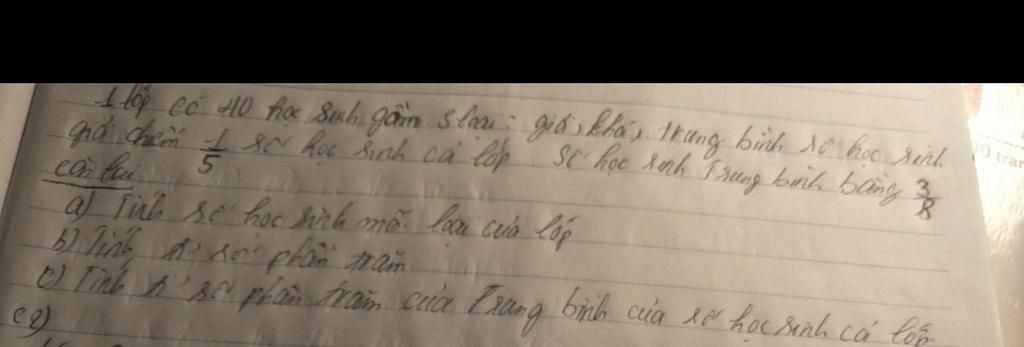 1 lớp có 40 học sinh gồm 3 loại: giỏi, khá, trung bình số học sinh
giỏi chiếm 1/5 số học sinh cả lớp số học sinh Trung bình bằng 3/8
còn lại
a) Tính số học sinh mỗi loại của lớp
b) Tính tỉ số phần trăm
c) Tính tỉ số phần trăm của Trung bình của số học sinh cả lớp.
c2)